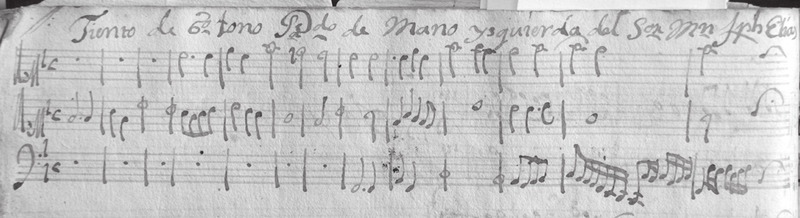 Tiento de 6º tono Pdo de Mano ysquierda del Sor Mn Jph Elias